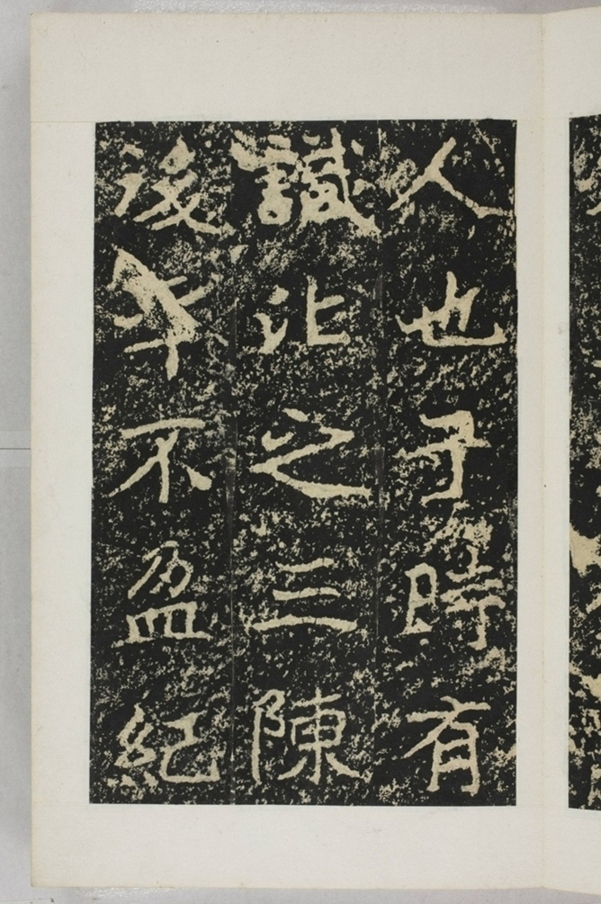 人也于時有
識比之三陳
後年不盈紀